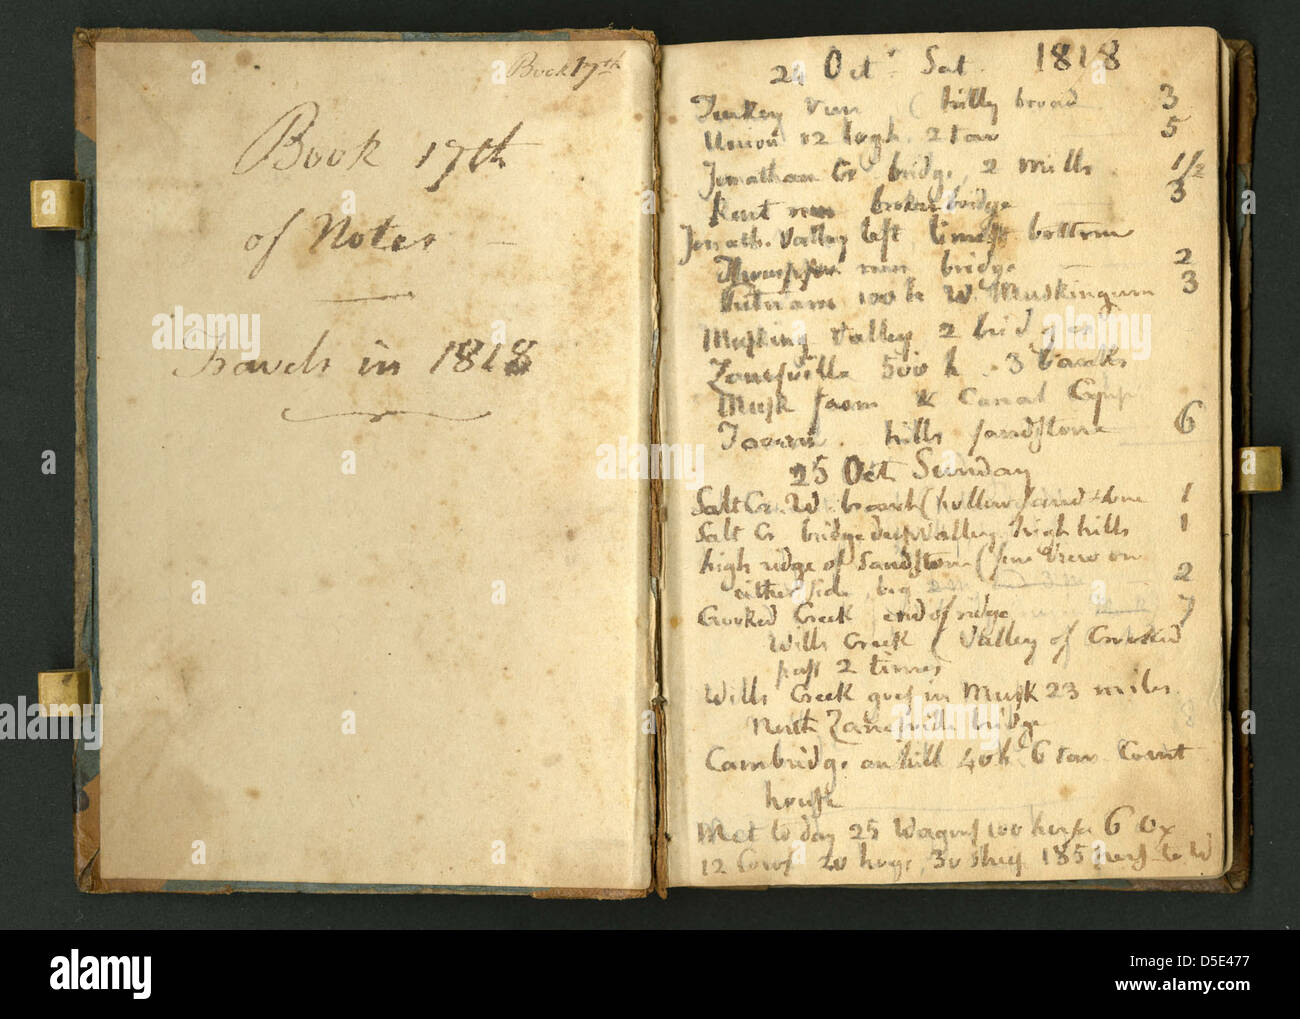 Book 17th
Book 17th
of Notes
Travels in 1818
24 Oct. Sat. 1818
Turkey run ( hilly broad 3
Union 12 logh. 2 tav 5
Jonathan Cr bridge, 2 mills 1/2
Kent run broken bridge 3
Jonath. Valley left limest bottom
Thompson run bridge 2
Putnam 100 h W. Muskingum 3
Musking Valley 2 bridges
Zanesville 500 h - 3 banks
Musk & Canal
Tavern. hills sandstone 6
25 Oct Sunday
Salt Cr. W. branch ( hollow sandstone 1
Salt Cr bridge deep Valley, high hills 1
high ridge of Sandston ( fine view on
either side, big 2
Crooked Creek end of ridge 7
Wills Creek ( Valley of Crooked
pass 2 times
Wills Creek goes in Musk 23 miles
North Zanesville bridge
Cambridge on hill 40 h 6 tav Court
house
Met to day 25 Wagons 100 horse 6 Ox
12 Cows 20 hogs, 30 sheep 185 pers to W
alamy
Image ID: D5E477
www.alamy.com